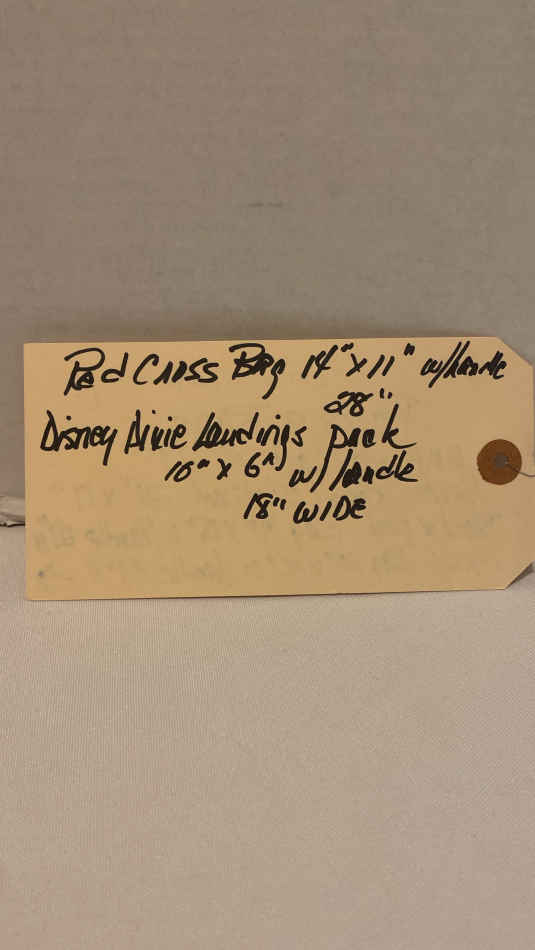 Red Cross Bag 14" x 11" w/handle
28"
Disney Dixie Landings pack
10" x 6" w/ handle
18" WIDE